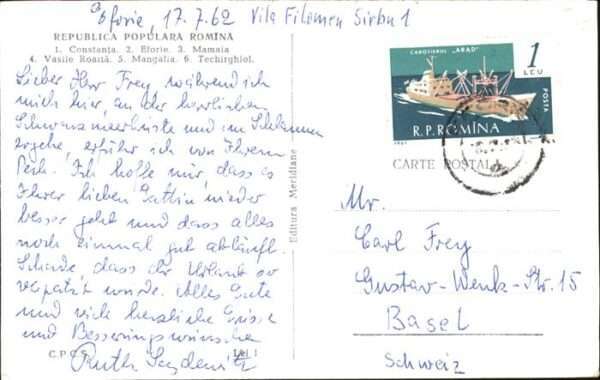 Eforie, 17.7.62 Vila Filomen Sirbu 1
REPUBLICA POPULARĂ ROMÎNĂ
1. Constanţa. 2. Eforie. 3. Mamaia
4. Vasile Roaită. 5. Mangalia. 6. Techirghiol.
Lieber Herr Frey, während ich
mich hier, an der herrlichen
Schwarzmeerküste und im Schlamm
ergehe, erfuhr ich von Ihrem
Pech. Ich hoffe nur, dass es
Ihrer lieben Gattin wieder
besser geht und dass alles
noch einmal gut abläuft.
Schade, dass der Urlaub so
verpatzt wurde. Alles Gute
und viele herzliche Grüsse
und Besserungswünsche
Ruth
C.P.C.S.
Editura Meridiane
CAROTIERUL „ARAD"
1
LEU
POSTA
R.P.ROMÎNĂ
1961
CARTE POSTALĂ
Mr.
Carl Frey
Gustav-Wenk-Str. 15
Basel
Schweiz